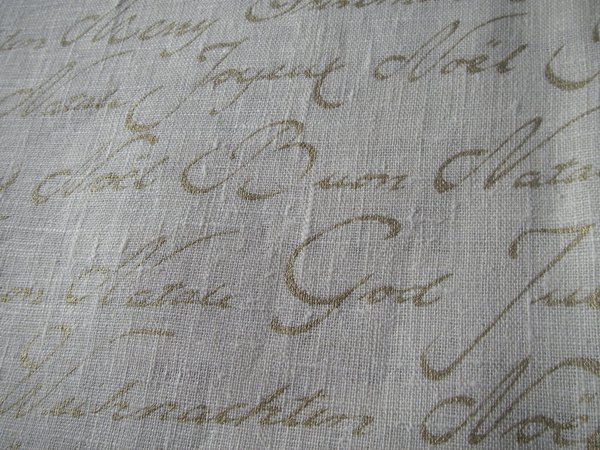 Merry
Natale Joyeux Noël
Noël Buon Natale
Natale God Jul
Weihnachten Noël